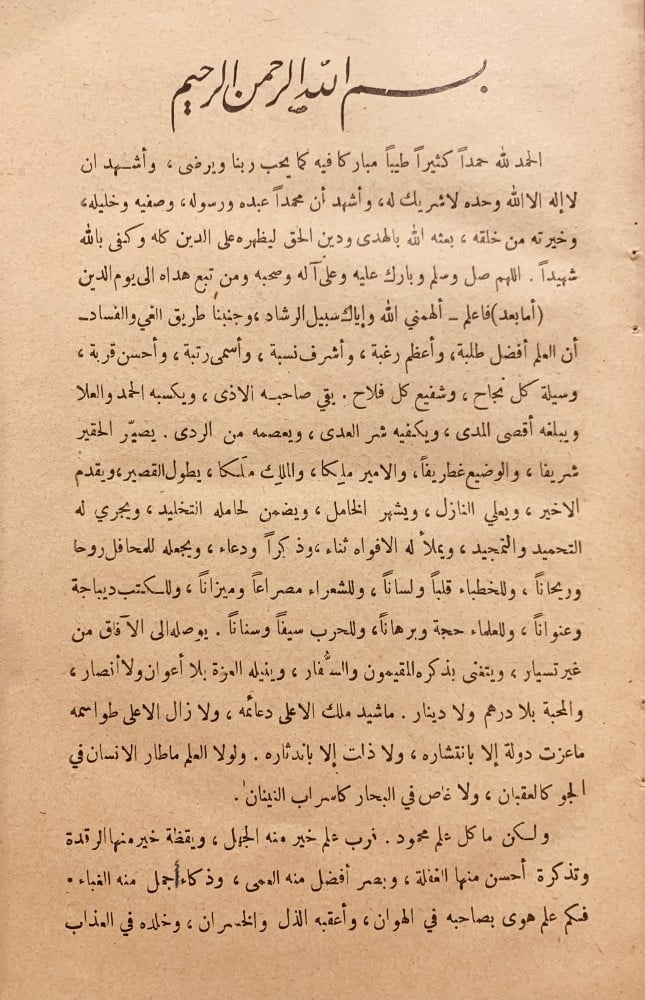 بسم الله الرحمن الرحيم
الحمد لله حمداً كثيراً طيباً مباركا فيه كما يحب ربنا ويرضى ، وأشهد ان
لا إله الا الله وحده لا شريك له، وأشهد أن محمداً عبده ورسوله، وصفيه وخليله،
وخيرته من خلقه ، بعثه الله بالهدى ودين الحق ليظهره على الدين كله وكفى بالله
شهيداً . اللهم صل وسلم وبارك عليه وعلى آله وصحبه ومن تبع هداه الى يوم الدين
(أما بعد) فاعلم ــ ألهمني الله وإياك سبيل الرشاد ، وجنبنا طريق الغي والفساد ــ
أن العلم أفضل طلبة، وأعظم رغبة ، وأشرف نسبة ، وأسمى رتبة ، وأحسن قربة ،
وسيلة كل نجاح ، وشفيع كل فلاح . يقي صاحبه الاذى ، ويكسبه الحمد والعلا
ويبلغه أقصى المدى ، ويكفيه شر العدى ، ويعصمه من الردى . يصيّر الحقير
شريفا ، والوضيع غطريفاً، والامير مليكا ، والمليك ملكا ، يطول القصير، ويقدم
الاخير ، ويعلي النازل ، ويشهر الخامل ، ويضمن لحامله التخليد ، ويجري له
التحميد والتمجيد ، ويملأ له الافواه ثناء ، وذكراً ودعاء ، ويجعله للمحافل روحا
وريحاناً ، وللخطباء قلباً ولساناً ، وللشعراء مصراعاً وميزاناً ، وللكتب ديباجة
وعنواناً ، وللعلماء حجة وبرهاناً، وللحرب سيفاً وسناناً . يوصله الى الآفاق من
غير تسيار ، ويتغنى بذكره المقيمون والسُّفار ، وينيله العزة بلا أعوان ولا أنصار ،
والمحبة بلا درهم ولا دينار . ماشيد ملك الاعلى دعائمه ، ولا زال الاعلى طواسمه
ماعزت دولة إلا بانتشاره ، ولا ذلت إلا باندثاره . ولولا العلم ماطار الانسان في
الجو كالعقبان ، ولا غاص في البحار كاسراب النينان .
ولكن ما كل علم محمود . فرب علم خير منه الجهل ، ويقظة خير منها الرقدة
وتذكرة أحسن منها الغفلة ، وبصر أفضل منه العمى ، وذكاء أجمل منه الغباء .
فكم علم هوى بصاحبه في الهوان ، وأعقبه الذل والخسران ، وخلده في العذاب